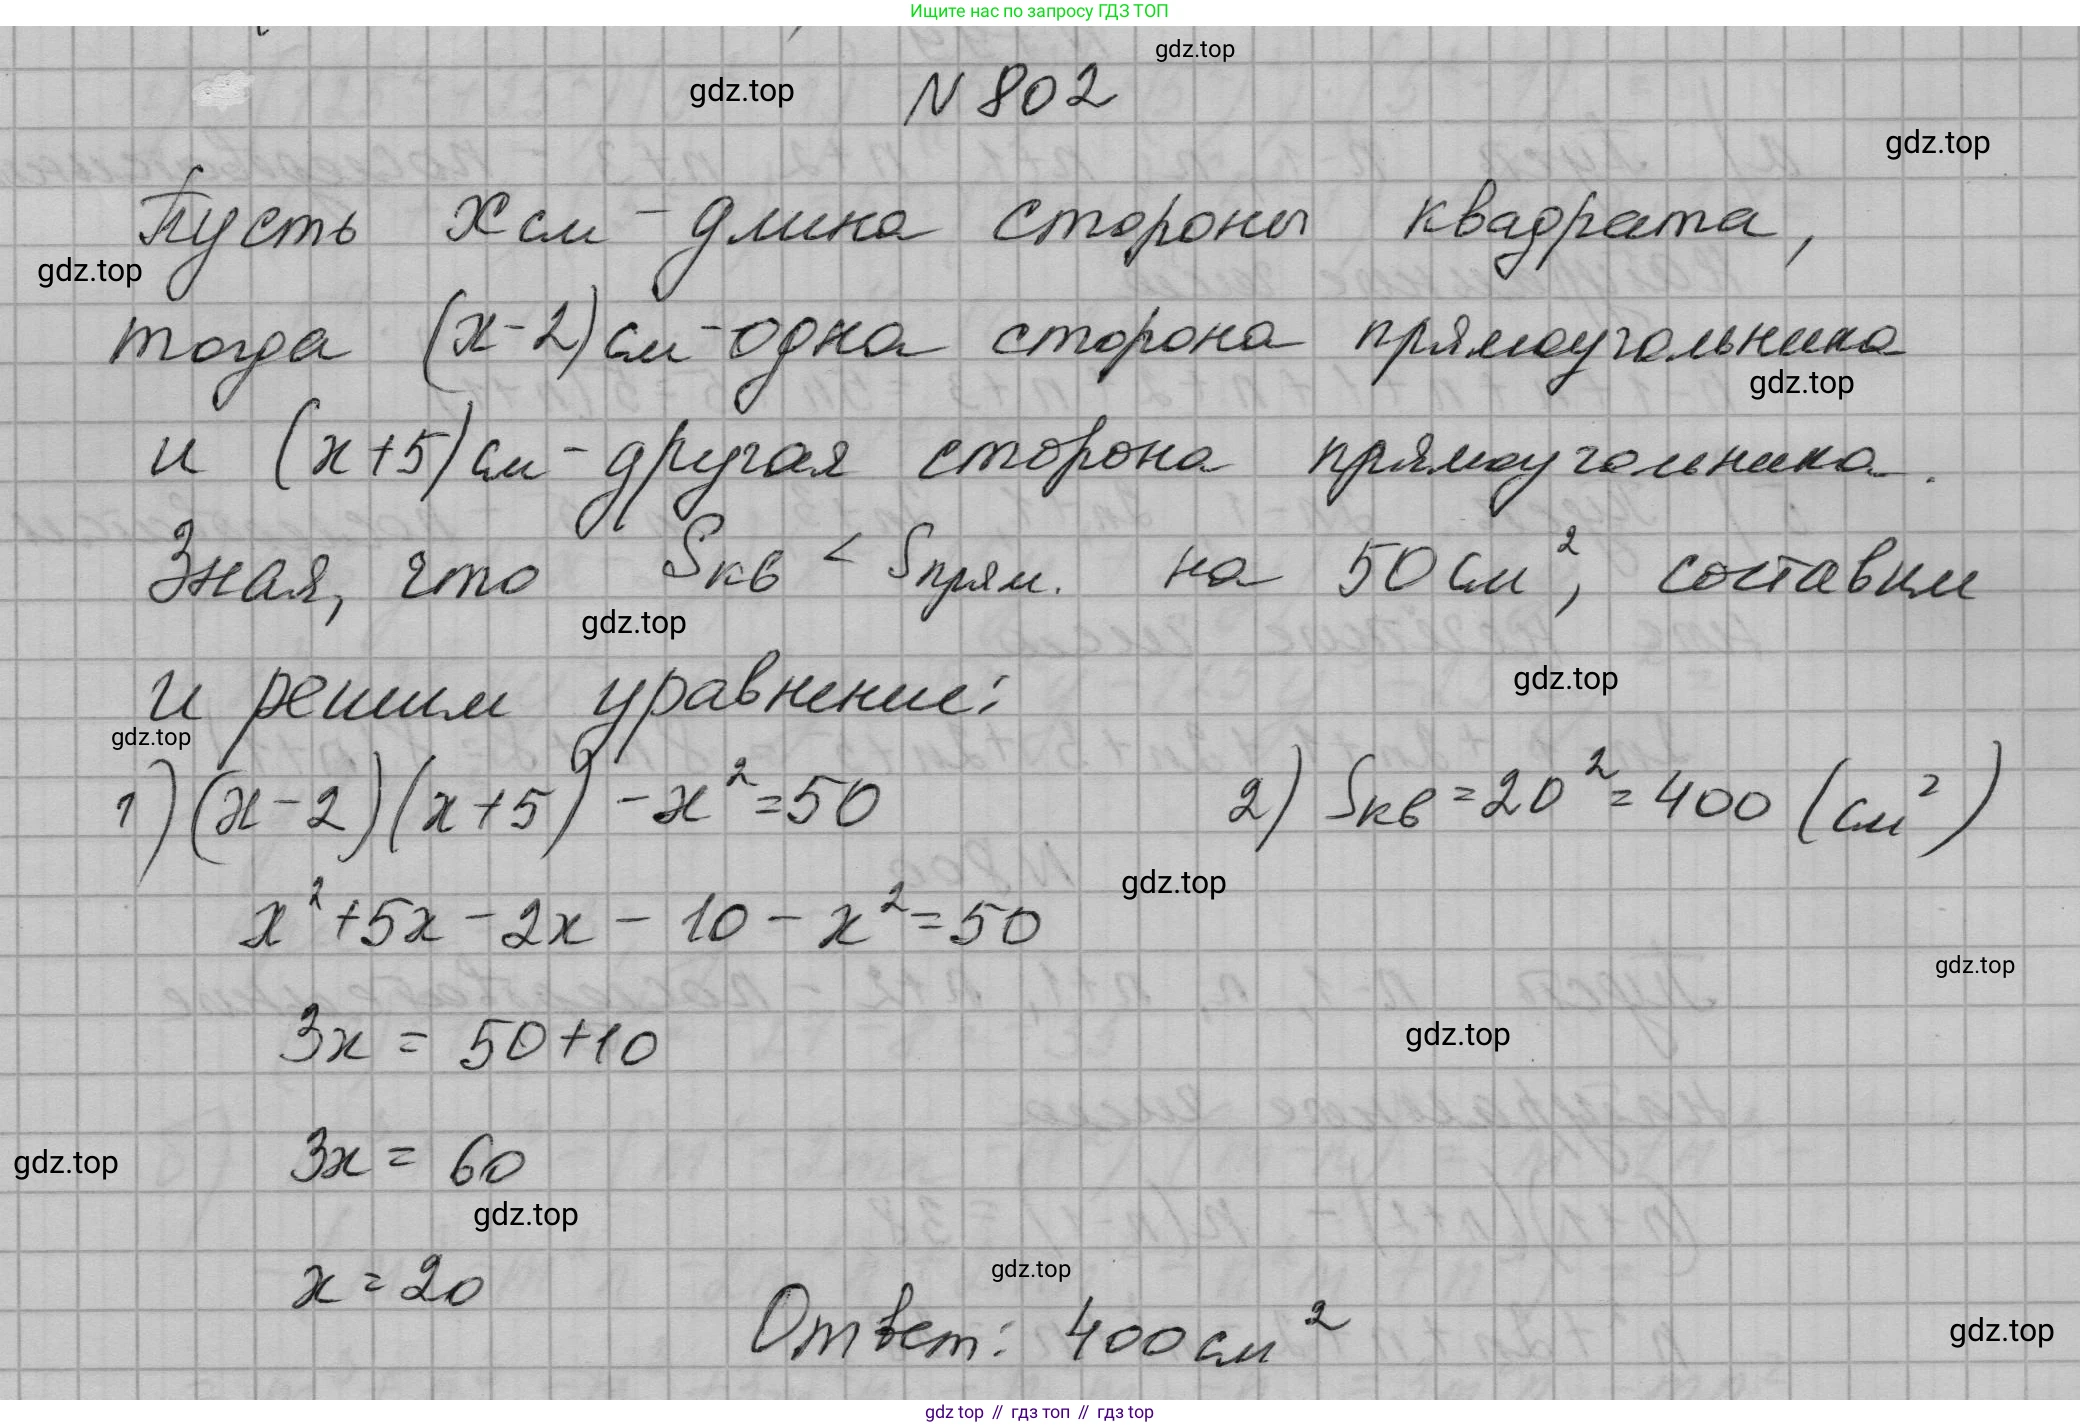 Ищите нас по запросу ГДЗ ТОП
gdz.top
gdz.top
N 802
gdz.top
Пусть x см - длина стороны квадрата,
gdz.top
тогда (x-2) см - одна сторона прямоугольника
gdz.top
и (x+5) см - другая сторона прямоугольника.
Зная, что Sкв < Sпрям. на 50 см², составим
gdz.top
и решим уравнение:
gdz.top
gdz.top
1) (x-2)(x+5) - x² = 50
2) Sкв = 20² = 400 (см²)
gdz.top
x² + 5x - 2x - 10 - x² = 50
gdz.top
3x = 50 + 10
gdz.top
3x = 60
gdz.top
gdz.top
x = 20
gdz.top
Ответ: 400 см²
gdz.top
gdz top // гдз топ // гдз top